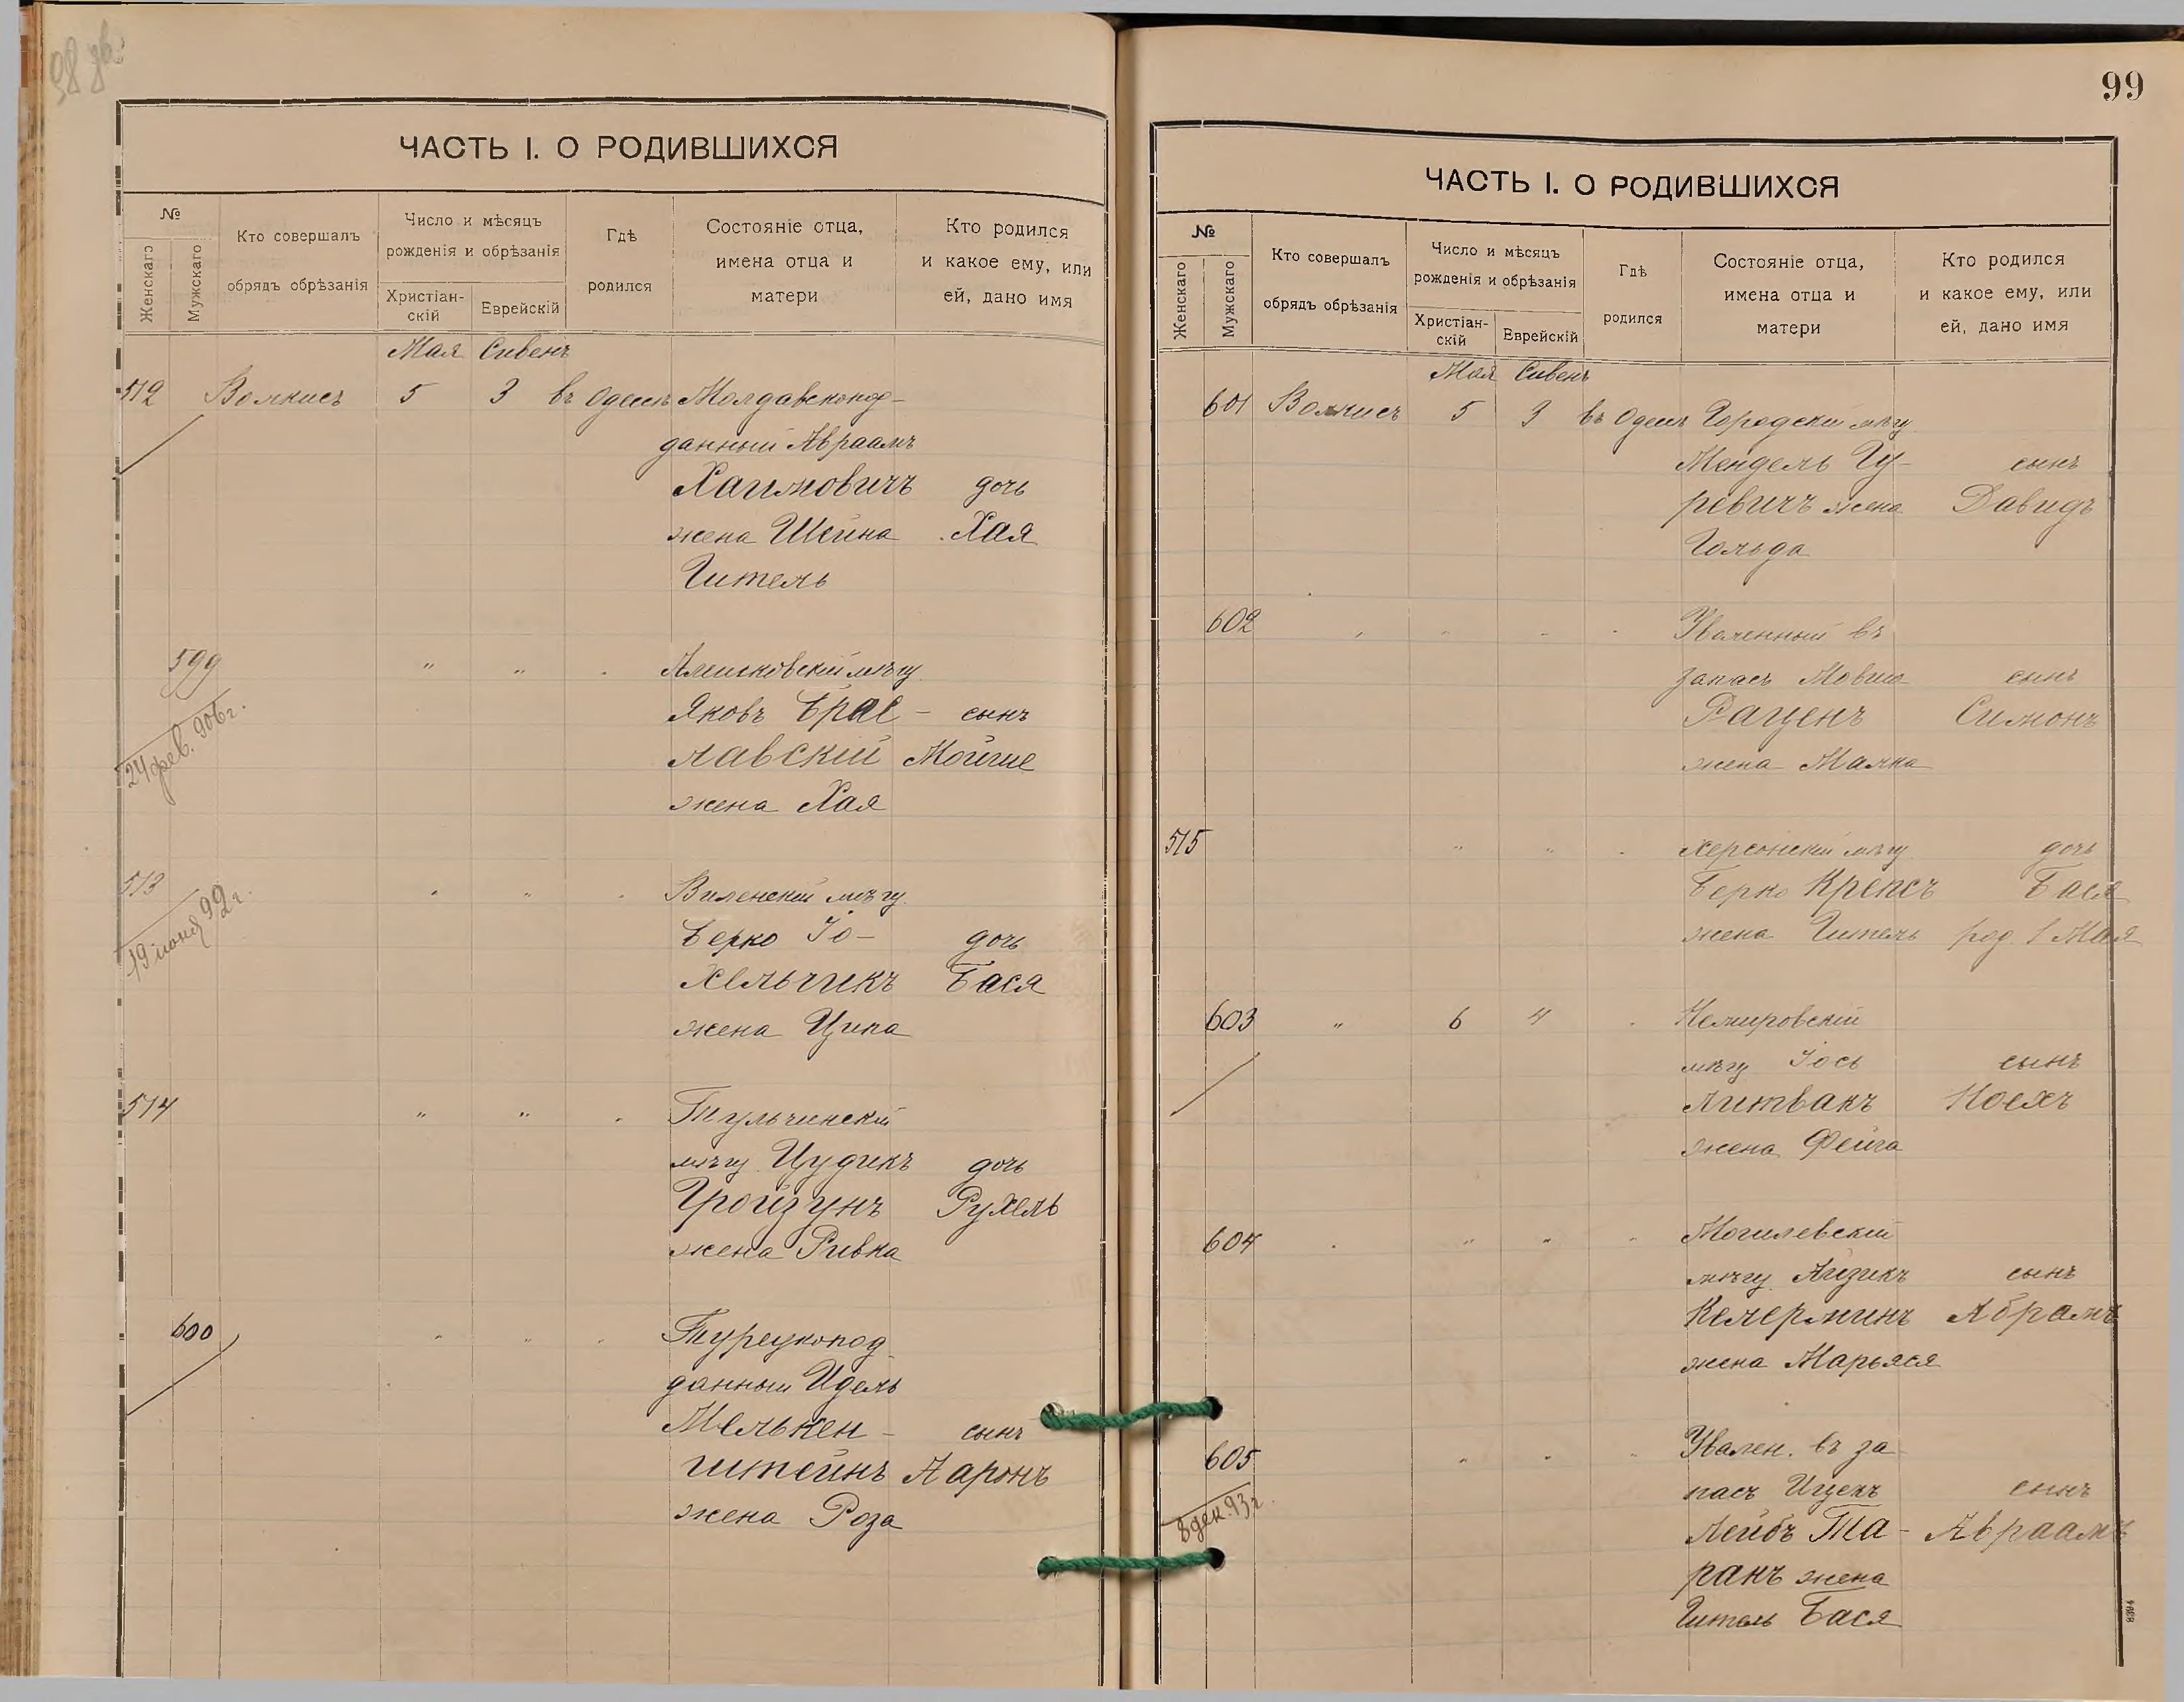 98 об.
ЧАСТЬ I. О РОДИВШИХСЯ
№
Женскаго
Мужскаго
Кто совершалъ
обрядъ обрѣзанія
Число и мѣсяцъ
рожденія и обрѣзанія
Христіан-
скій
Еврейскій
Гдѣ
родился
Состояніе отца,
имена отца и
матери
Кто родился
и какое ему, или
ей, дано имя
Мая Сивенъ
512 Волкисъ 5 3 въ Одессѣ Молдавскопод-
данный Авраамъ
Хаимовичъ дочь
жена Шейна Хая
Гитель
599 " " мѣщ.
Яковъ Брас- сынъ
лавскій Мойше
жена Хая
24 фев. 906 г.
513 " " Виленскій мѣщ.
Берко Іо- дочь
хельчикъ Бася
жена Ципа
19 июня 92 г.
514 " " Тульчинскій
мѣщ. Цудикъ дочь
Гройзунъ Рухель
жена Ривка
600 " " Турецкопод-
данный Идель
Мелькен- сынъ
штейнъ Ааронъ
жена Роза
99
ЧАСТЬ I. О РОДИВШИХСЯ
№
Женскаго
Мужскаго
Кто совершалъ
обрядъ обрѣзанія
Число и мѣсяцъ
рожденія и обрѣзанія
Христіан-
скій
Еврейскій
Гдѣ
родился
Состояніе отца,
имена отца и
матери
Кто родился
и какое ему, или
ей, дано имя
Мая Сивенъ
601 Волкисъ 5 3 въ Одессѣ Городскій мѣщ.
Мендель Гу- сынъ
ревичъ жена Давидъ
Гольда
602 " " " Уволенный въ
запасъ Мовша сынъ
Раценъ Симонъ
жена Малка
515 " " Херсонскій мѣщ. дочь
Берко Крепсъ Бася
жена Гитель род. 1 Мая
603 " 6 4 Немировскій
мѣщ. Іось сынъ
Литвакъ Ноехъ
жена Фейга
604 " " " Могилевскій
мѣщ. Айзикъ сынъ
Келерминъ Абрамъ
жена Марьяся
605 " " Уволен. въ за-
пасъ Ицекъ сынъ
Лейбъ Та- Авраамъ
ранъ жена
Гитель Бася
8 дек. 93 г.